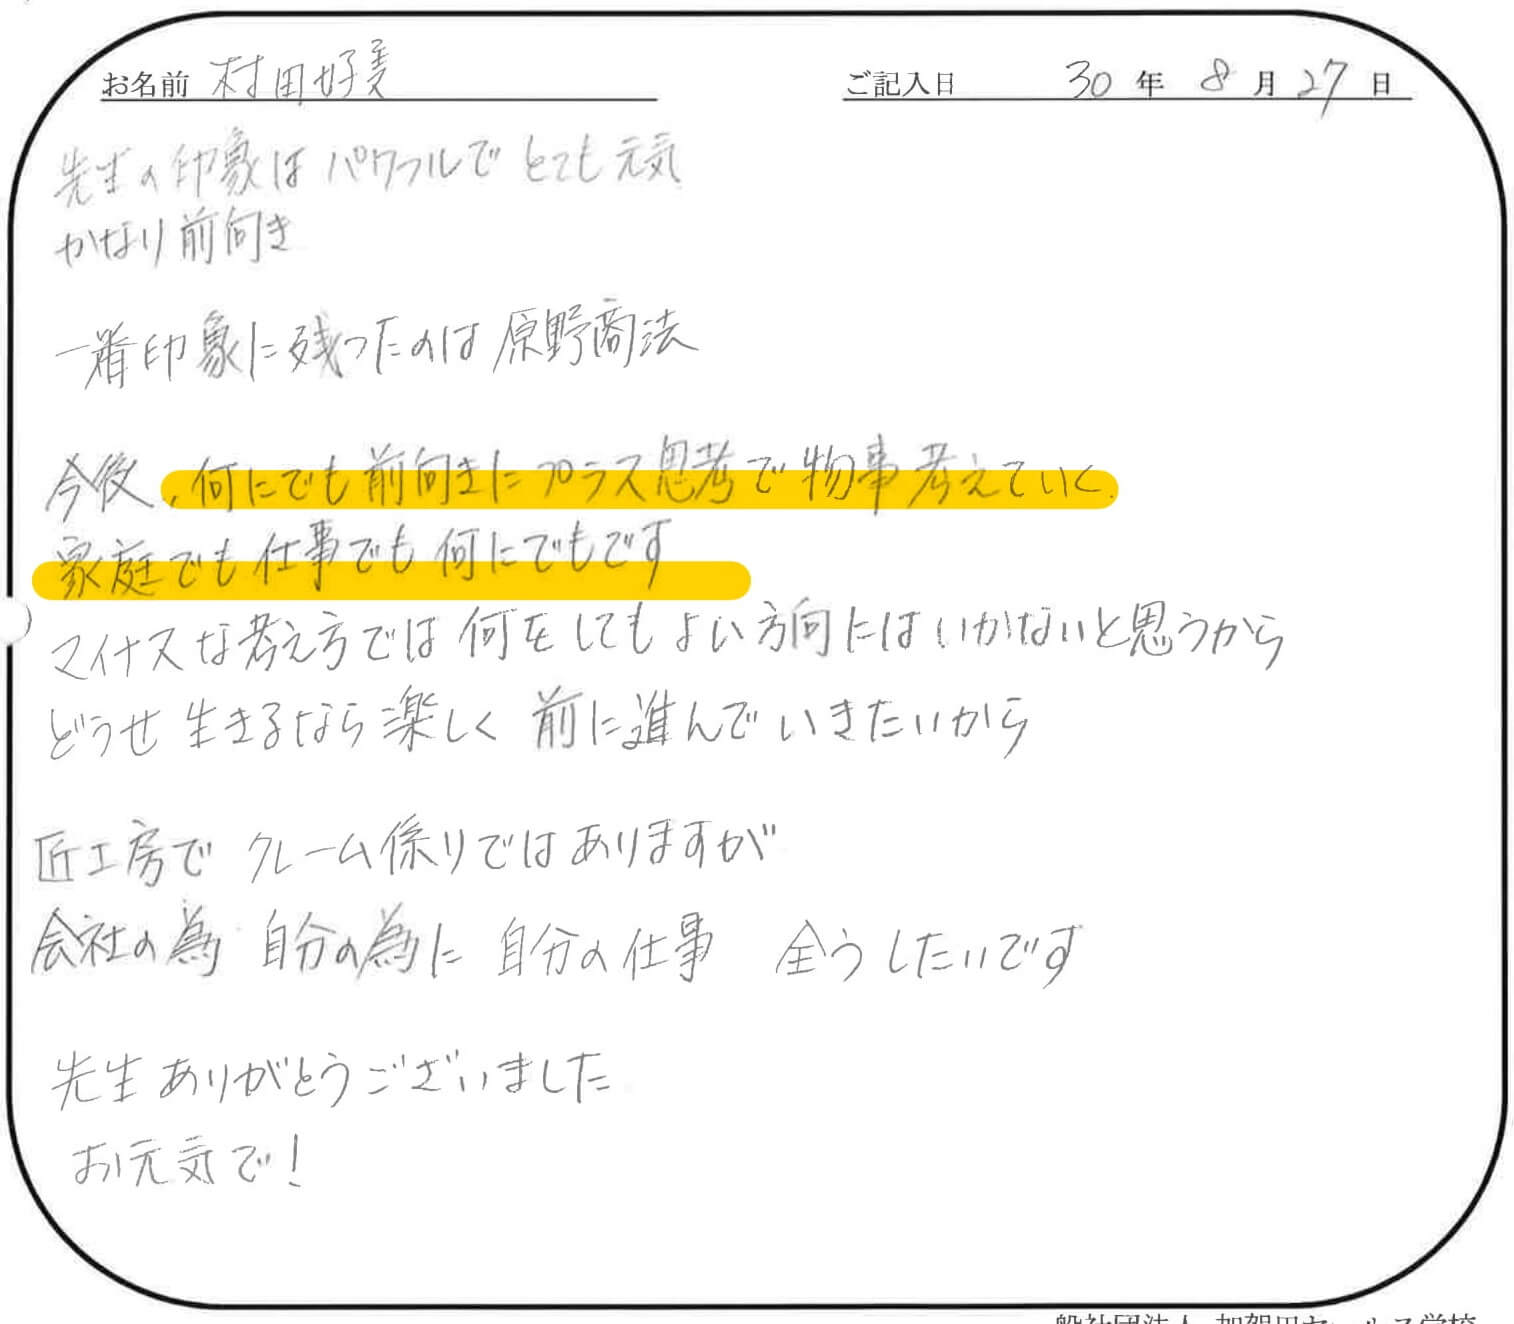 お名前 村田好美 ご記入日 30年 8月27日
先生の印象は パワフルで とても元気
かなり前向き
一番印象に残ったのは 原野商法
今後、何にでも前向きにプラス思考で物事考えていく.
家庭でも仕事でも何にでもです
マイナスな考え方では何をしてもよい方向にはいかないと思うから
どうせ生きるなら楽しく 前に進んでいきたいから
匠工房で クレーム係りではありますが
会社の為 自分の為に 自分の仕事 全うしたいです
先生ありがとうございました
お元気で!